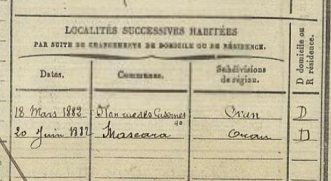 LOCALITÉS SUCCESSIVES HABITÉES
PAR SUITE DE CHANGEMENTS DE DOMICILE OU DE RÉSIDENCE.
Dates.
Communes.
Subdivisions
de région.
D domicile ou
R résidence.
18 Mars 1882
Oran
D
20 Juin
Mascara
Oran
D